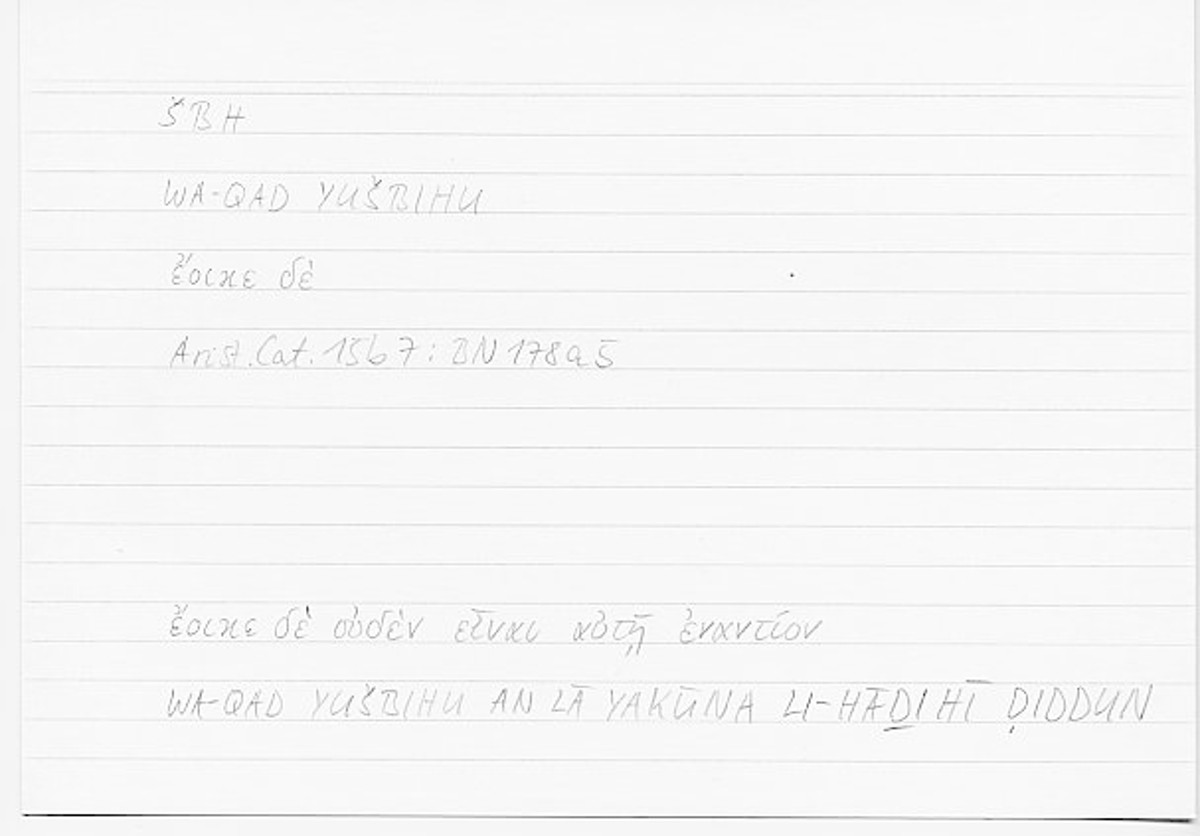 ŠBH
WA-QAD YUŠBIHU
ἔοικε δὲ
Arist. Cat. 15b7: BN 178a5
ἔοικε δὲ οὐδὲν εἶναι αὐτῇ ἐναντίον
WA-QAD YUŠBIHU AN LĀ YAKŪNA LI-HĀḎIHĪ ḌIDDUN